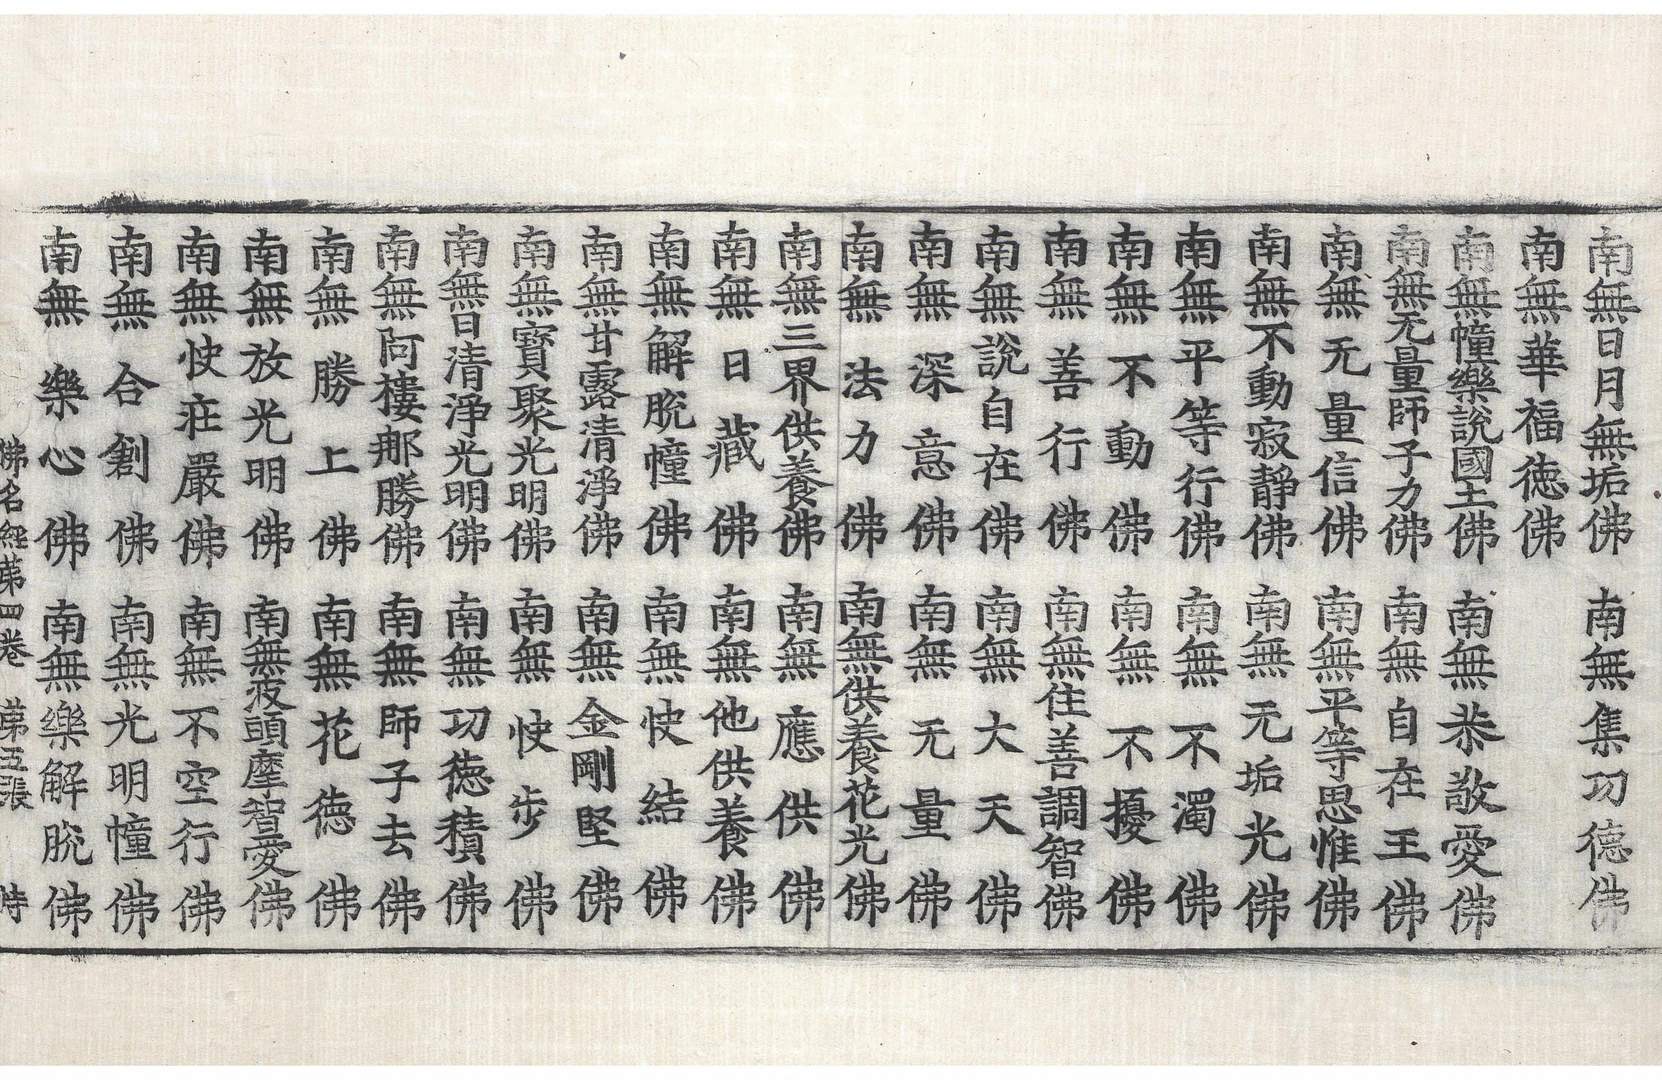 南無日月無垢佛 南無集功德佛
南無華福德佛
南無幢樂說國土佛 南無恭敬愛佛
南無无量師子力佛 南無自在王佛
南無无量信佛 南無平等思惟佛
南無不動寂靜佛 南無无垢光佛
南無平等行佛 南無不濁佛
南無不動佛 南無不擾佛
南無善行佛 南無住善調智佛
南無說自在佛 南無大天佛
南無深意佛 南無无量佛
南無法力佛 南無供養花光佛
南無三界供養佛 南無應供佛
南無日藏佛 南無他供養佛
南無解脫幢佛 南無快結佛
南無甘露清淨佛 南無金剛堅佛
南無寶聚光明佛 南無快步佛
南無日清淨光明佛 南無功德積佛
南無阿樓那勝佛 南無師子去佛
南無勝上佛 南無花德佛
南無放光明佛 南無波頭摩智愛佛
南無快莊嚴佛 南無不空行佛
南無合創佛 南無光明幢佛
南無樂心佛 南無樂解脫佛
佛名經第四卷 第五張